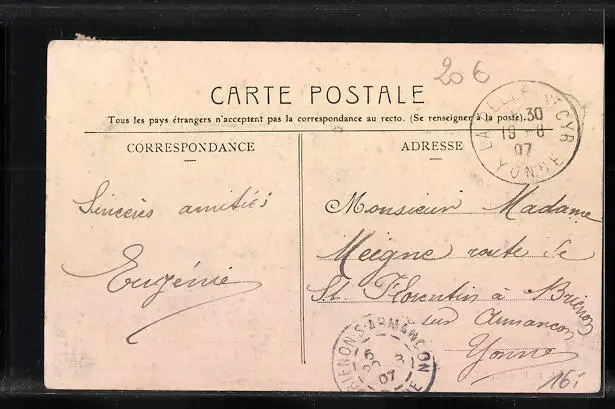 20€
CARTE POSTALE
Tous les pays étrangers n'acceptent pas la correspondance au recto. (Se renseigner à la poste).
CORRESPONDANCE
ADRESSE
LA CELLE ST CYR
30
19 - 8
07
YONNE
Sincères amitiés
Eugénie
Monsieur Madame
Meigne route de
St Florentin à Brienon
sur Armançon
Yonne
BRIENON-S-ARMANÇON
07